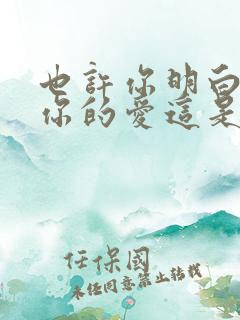 也許你明白
你的愛這是
任保國
未经同意禁止转载